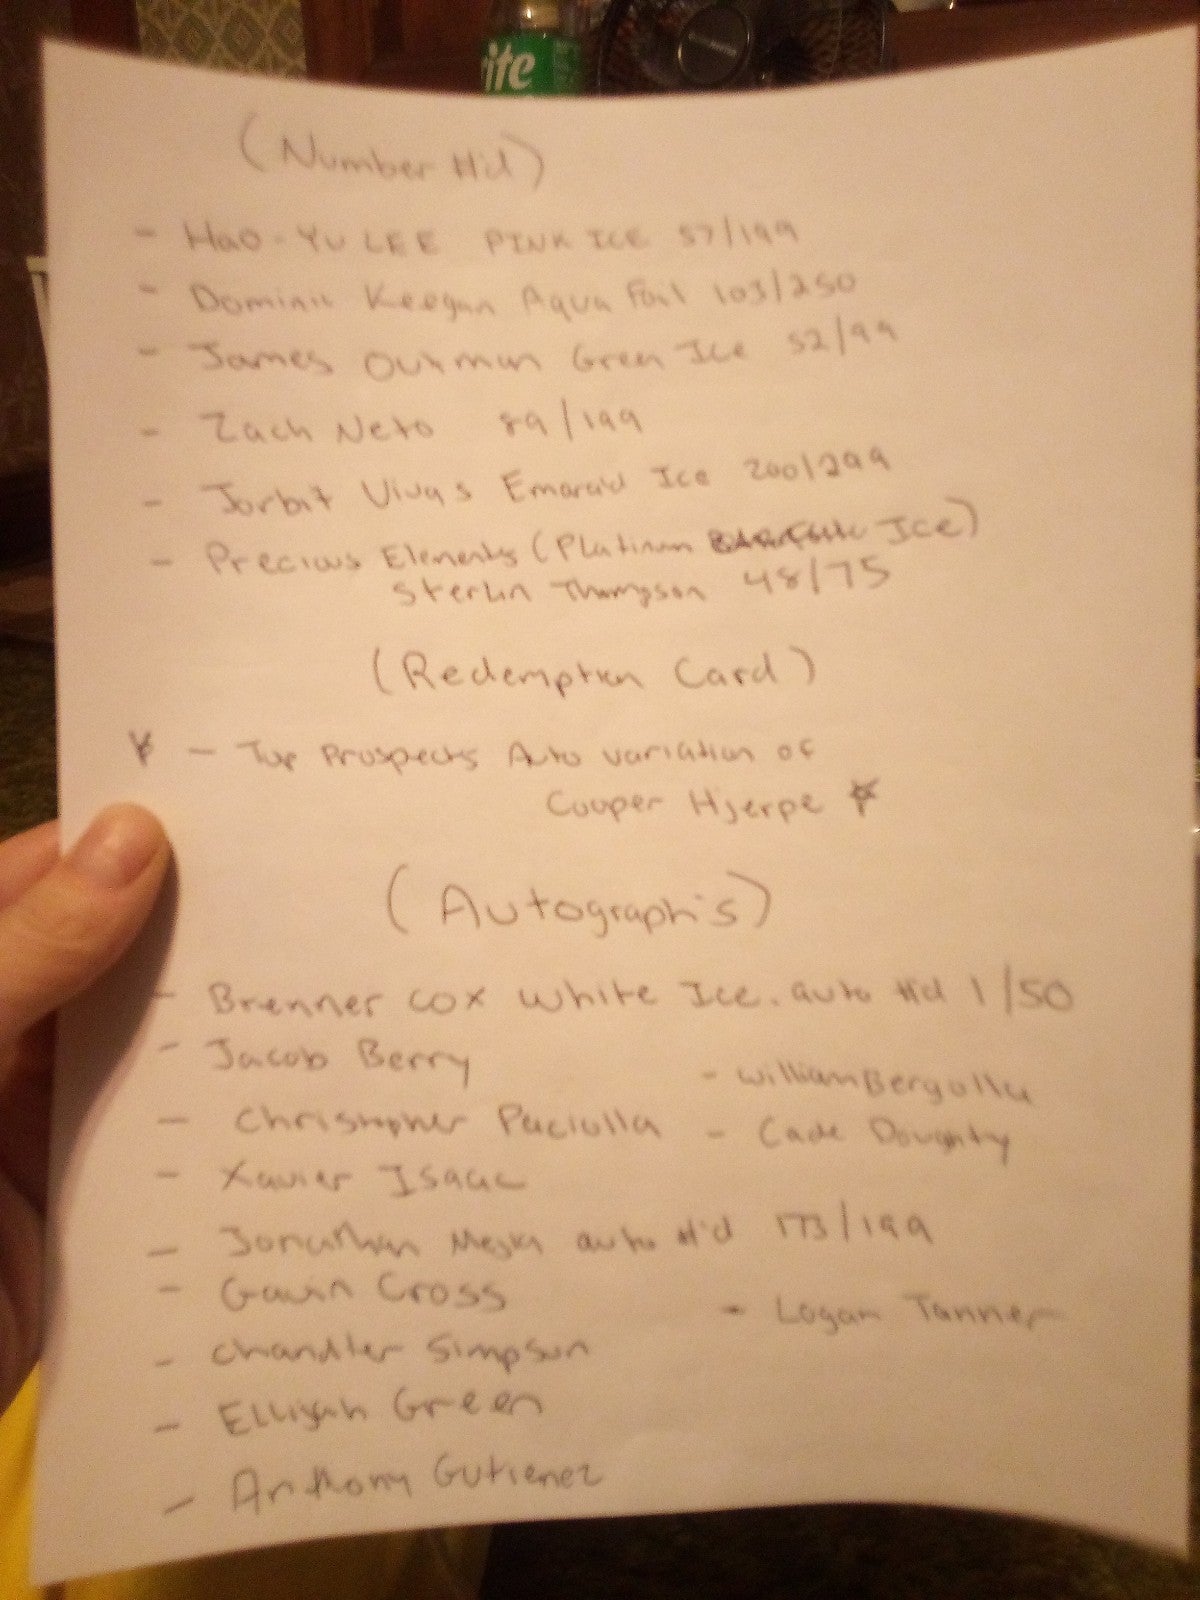 ite
(Number #'d)
- Hao-Yu LEE PINK ICE 57/199
- Dominic Keegan Aqua Foil 103/250
- James Outman Green Ice 52/99
- Zach Neto 89/199
- Jorbit Vivas Emerald Ice 200/299
- Precious Elements (Platinum Ice)
Sterlin Thompson 48/75
(Redemption Card)
- Top Prospects Auto variation of
Cooper Hjerpe
(Autograph's)
- Brenner Cox White Ice. auto #'d 1/50
- Jacob Berry
- William Bergolla
- Christopher Paciolla - Cade Doughty
- Xavier Isaac
- Jonathan Mejia auto #'d 173/199
- Gavin Cross
- Logan Tanner
- Chandler Simpson
- Elliyah Green
- Anthony Gutierrez